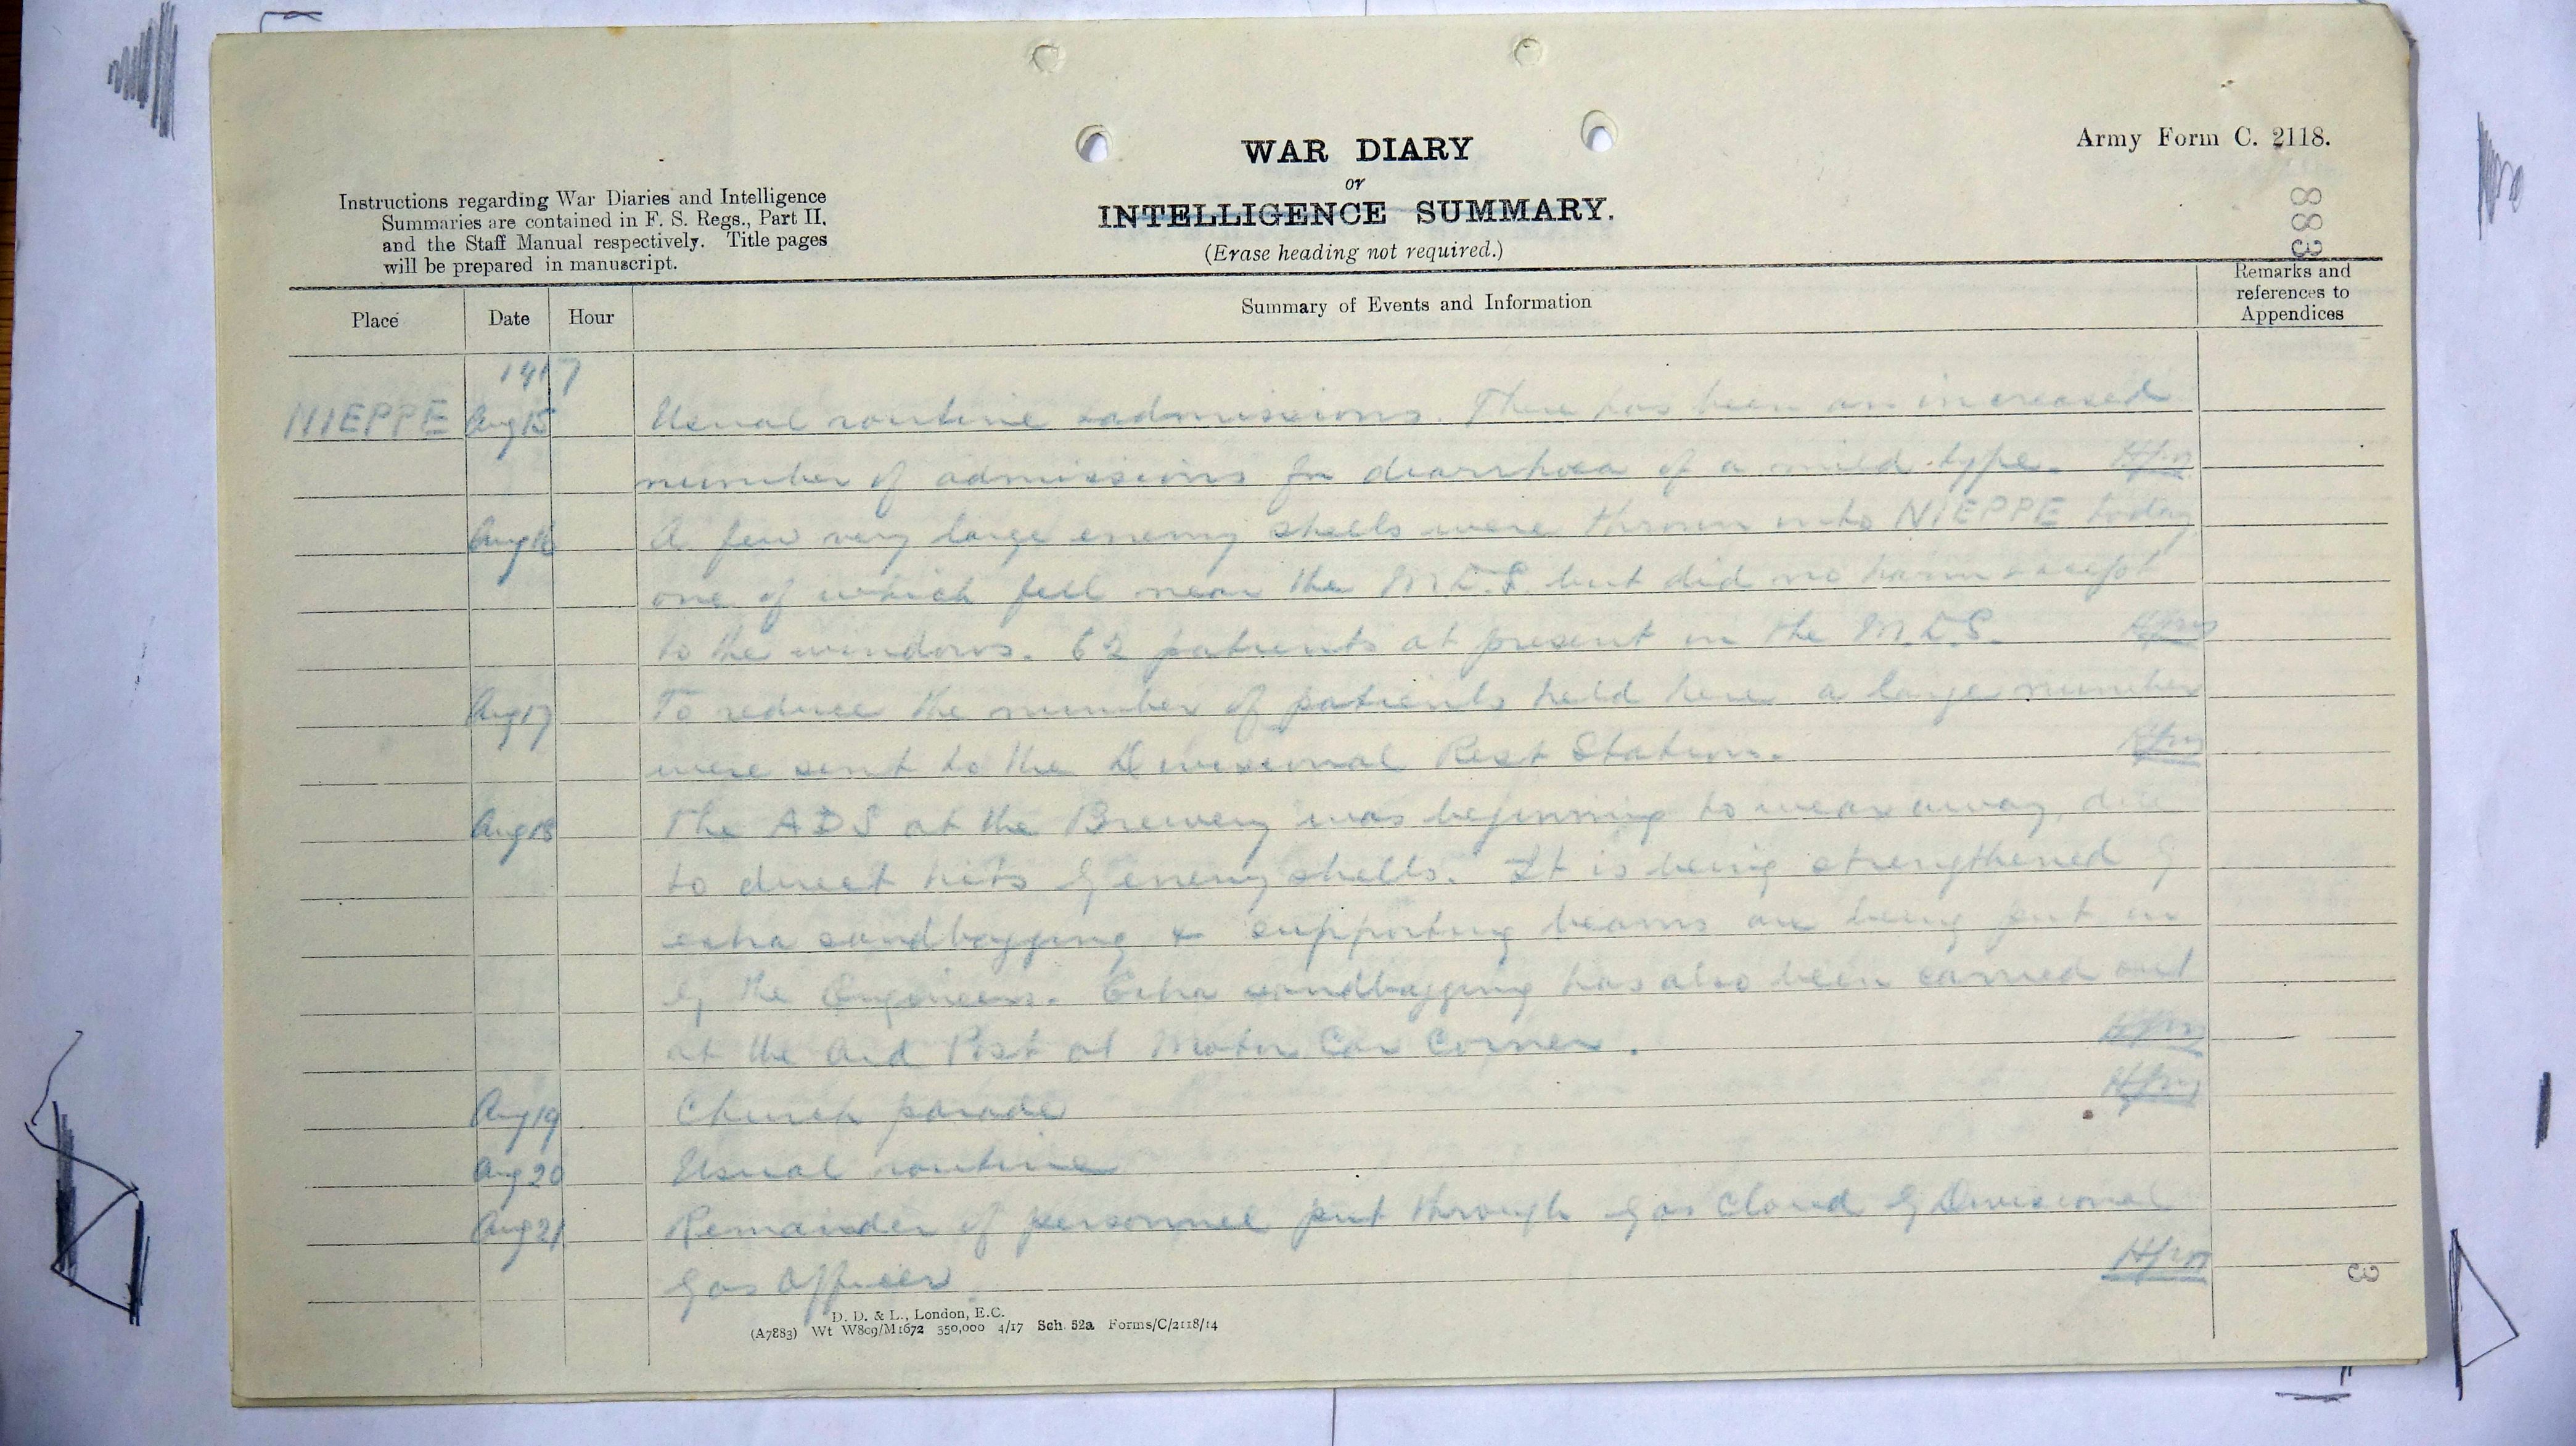 Army Form C. 2118.
WAR DIARY
or
INTELLIGENCE SUMMARY.
(Erase heading not required.)
Instructions regarding War Diaries and Intelligence
Summaries are contained in F. S. Regs., Part II.
and the Staff Manual respectively. Title pages
will be prepared in manuscript.
883
Place
Date
Hour
Summary of Events and Information
Remarks and
references to
Appendices
1917
NIEPPE Aug 15 Usual routine admissions. There has been an increased
number of admissions for diarrhoea of a mild type.
Aug 16 A few very large enemy shells were thrown into NIEPPE today
one of which fell near the M.D.S. but did no harm except
to the windows. 62 patients at present in the M.D.S.
Aug 17 To reduce the number of patients held here a large number
were sent to the Divisional Rest Station.
Aug 18 The ADS at the Brewery was beginning to wear away, due
to direct hits by enemy shells. It is being strengthened by
extra sandbagging & supporting beams are being put in
by the Engineers. Extra sandbagging has also been carried out
at the Aid Post at Motor Car Corner.
Aug 19 Church parade
Aug 20 Usual routine
Aug 21 Remainder of personnel put through gas cloud by Divisional
Gas Officer.
D. D. & L., London, E.C.
(A7883) Wt W809/M1672 350,000 4/17 Sch. 52a Forms/C/2118/14
3